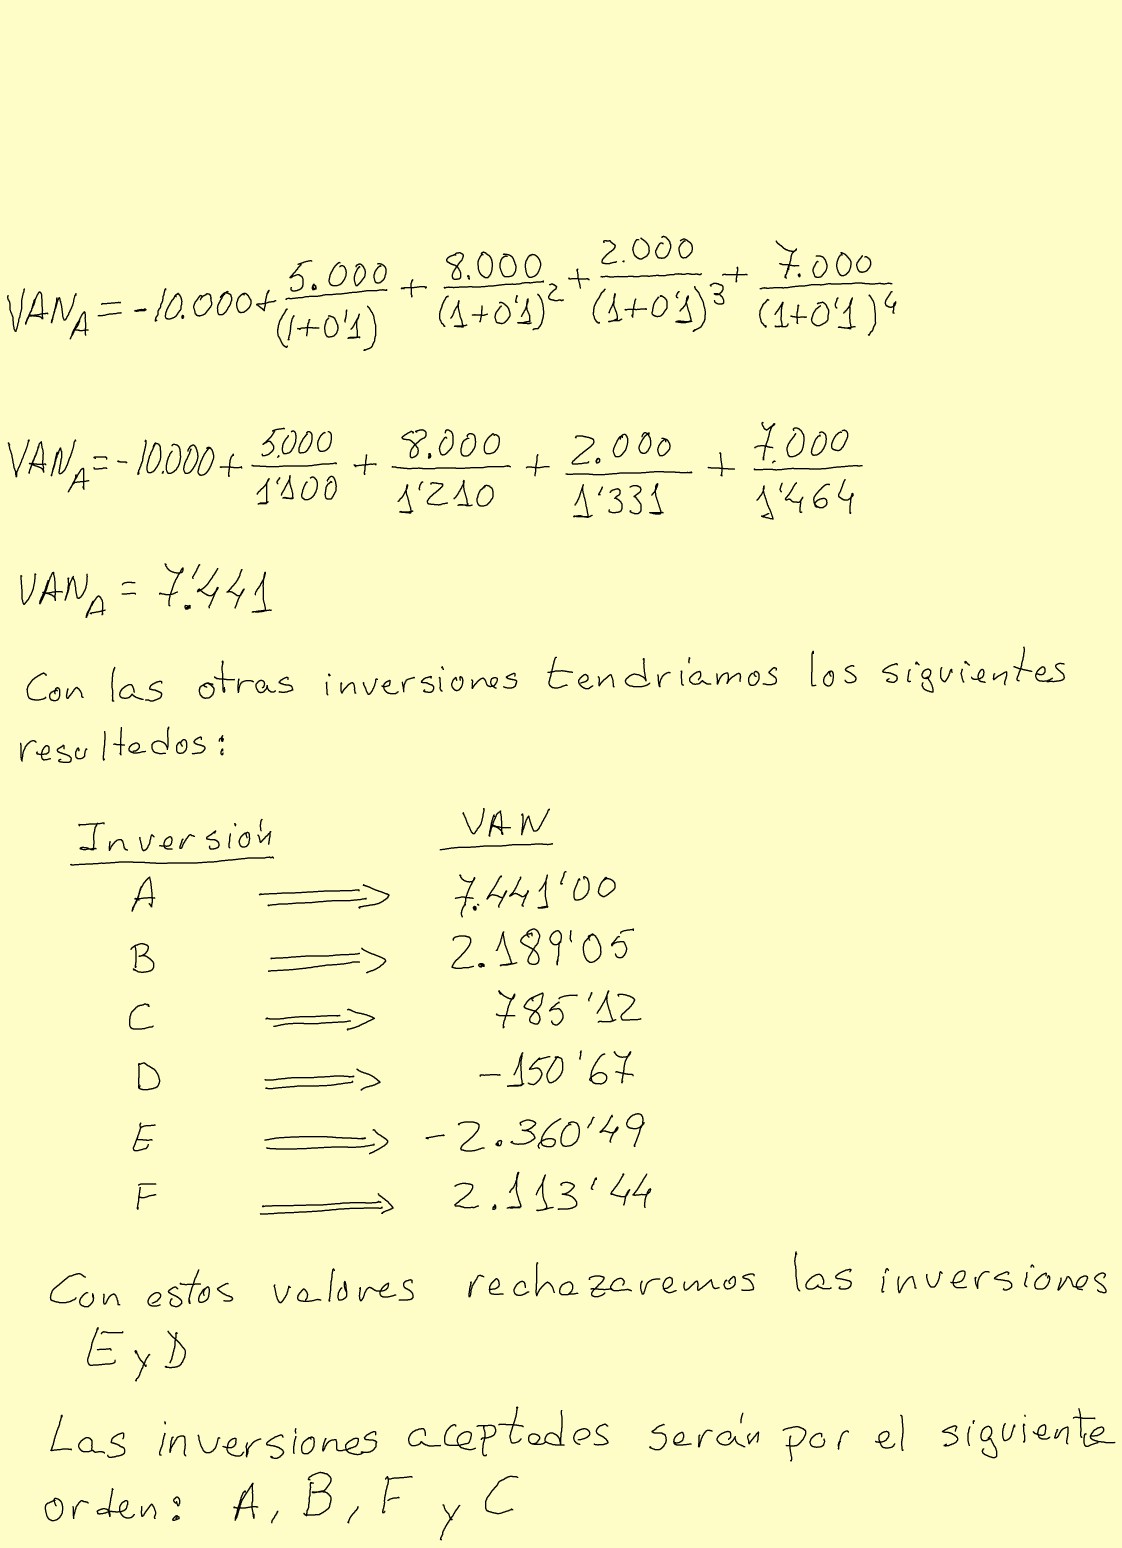 VAN_A = -10.000 + 5.000/(1+0'1) + 8.000/(1+0'1)^2 + 2.000/(1+0'1)^3 + 7.000/(1+0'1)^4
VAN_A = -10.000 + 5.000/1'100 + 8.000/1'210 + 2.000/1'331 + 7.000/1'464
VAN_A = 7.'441
Con las otras inversiones tendríamos los siguientes
resultados:
Inversión VAN
A ⟹ 7.441'00
B ⟹ 2.189'05
C ⟹ 785'12
D ⟹ -150'67
E ⟹ -2.360'49
F ⟹ 2.113'44
Con estos valores rechazaremos las inversiones
E y D
Las inversiones aceptades serán por el siguiente
orden: A, B, F y C